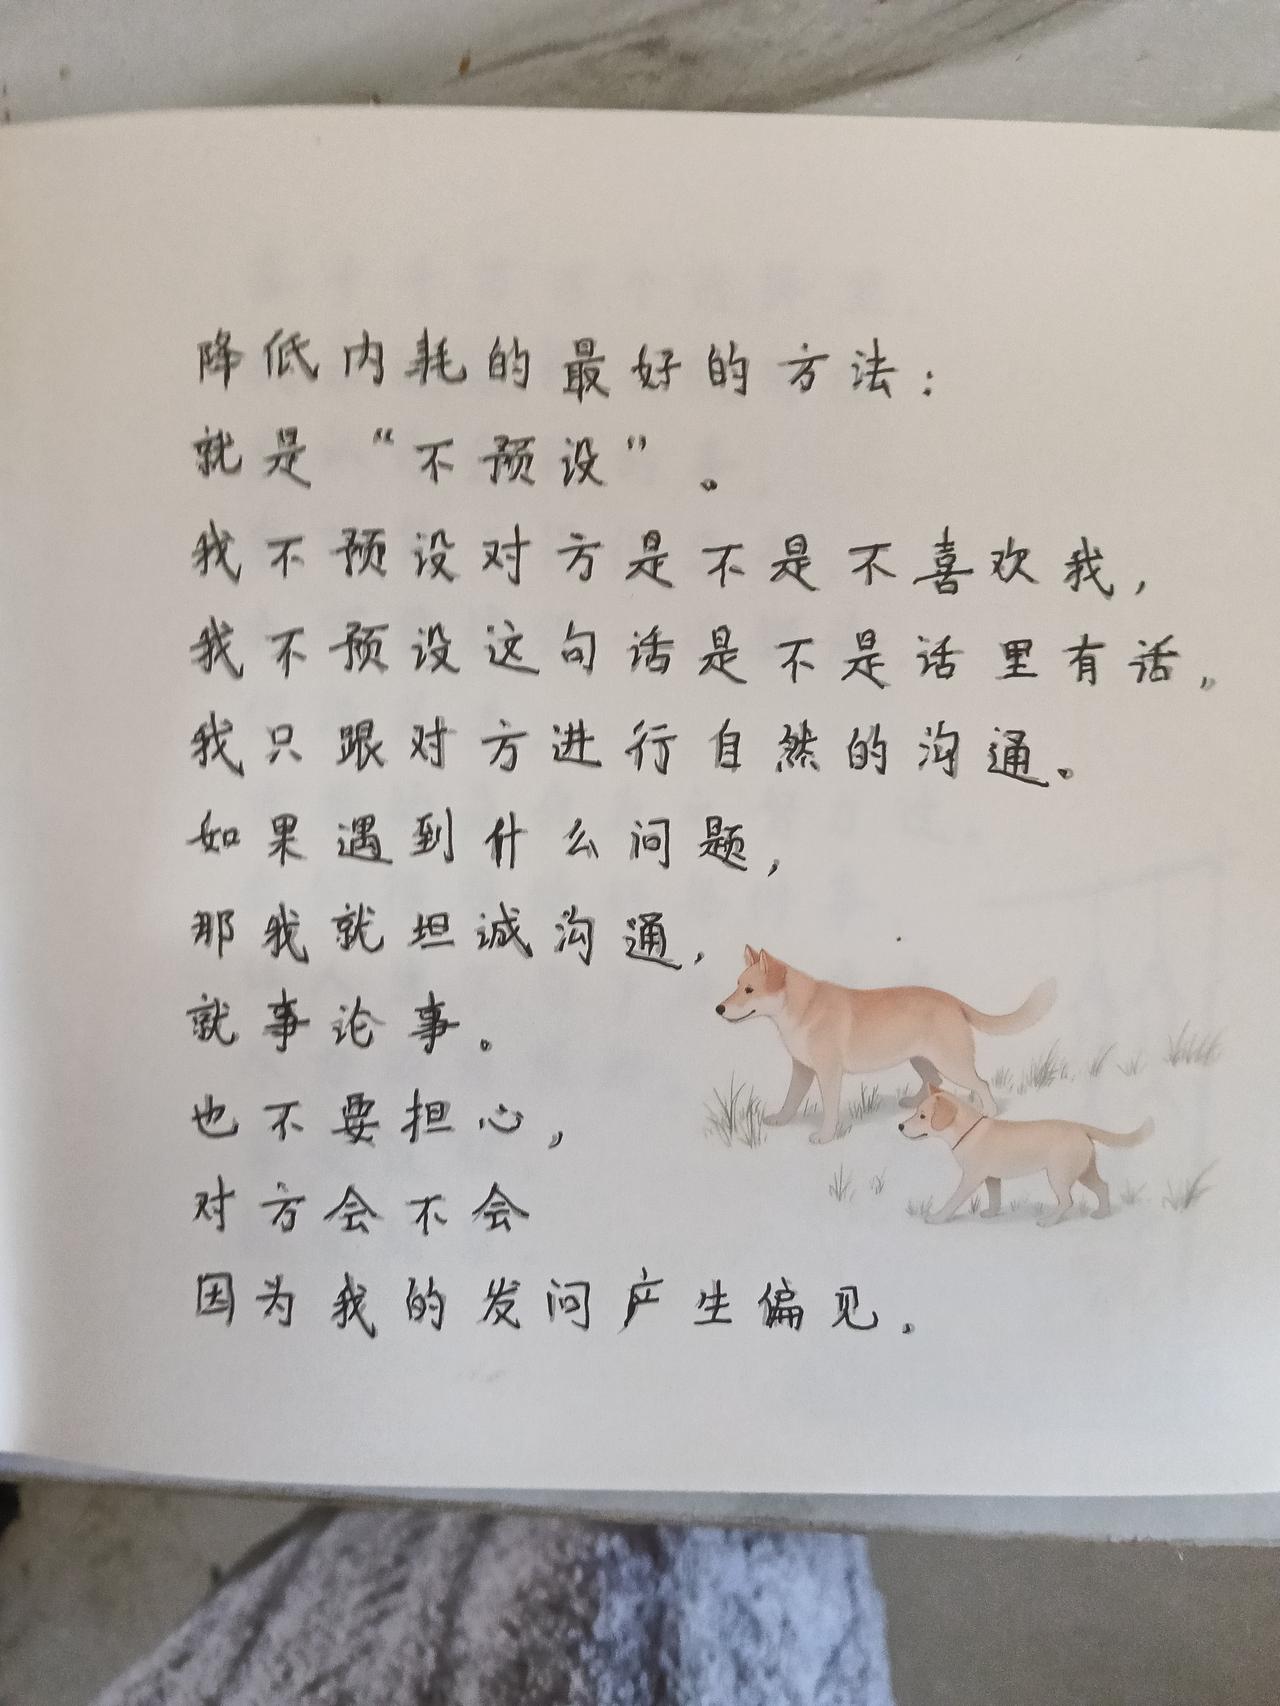 降低内耗的最好的方法：
就是“不预设”。
我不预设对方是不是不喜欢我，
我不预设这句话是不是话里有话。
我只跟对方进行自然的沟通。
如果遇到什么问题，
那我就坦诚沟通，
就事论事。
也不要担心，
对方会不会
因为我的发问产生偏见。